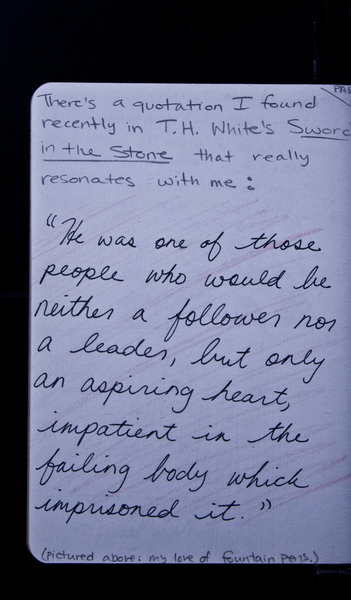 PA
There's a quotation I found
recently in T.H. White's Sword
in the Stone that really
resonates with me:
"He was one of those
people who would be
neither a follower nor
a leader, but only
an aspiring heart,
impatient in the
failing body which
imprisoned it."
(pictured above: my love of fountain pens.)